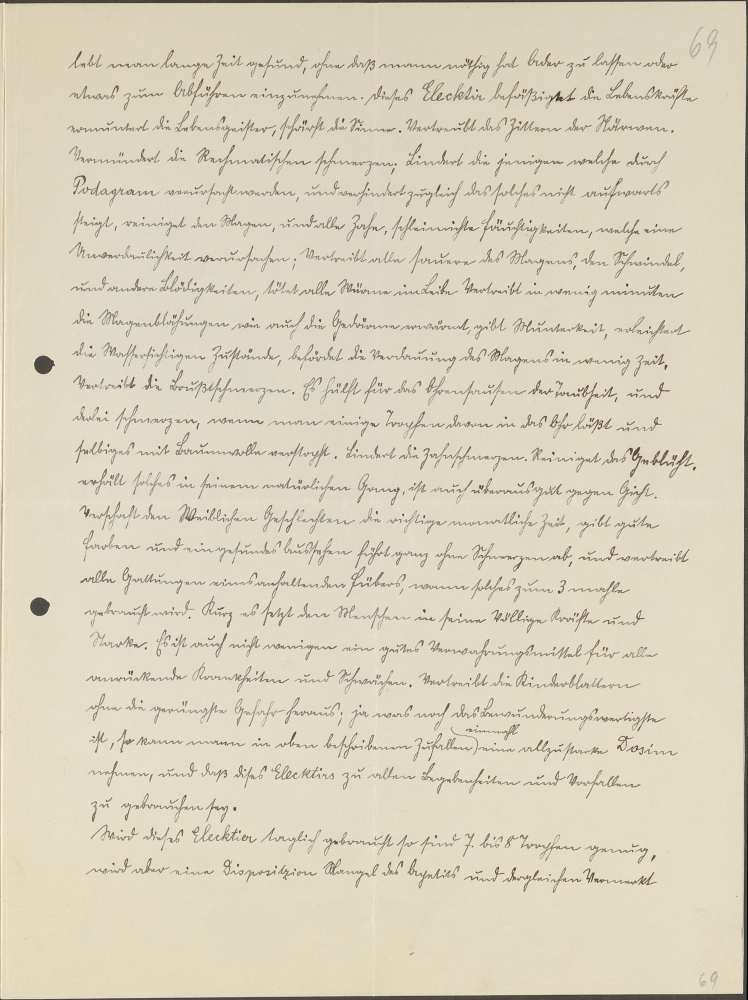 69
lebt man lange Zeit gesund, ohne daß mann nöthig hat Ader zu lassen oder
etwas zum Abführen einzunehmen. Dieses Elecktir befräftigtet die Lebenskräfte
ermuntert die Lebensgeister, schärft die Sinner. Vertreubt das Zittern der Närwen.
Vermündert die Rechmatischen schmerzen; Lindert die jenigen welche durch
Podagram verursacht werden, und verhindert zugleich das solches nicht aufwarts
steigt, reiniget den Magen, und alle Zähe, schleimichte fäuchtigkeiten, welche eine
Unverdaulichkeit verursachen; Vertreibt alle sauere des Magens, den Schwindel,
und andere Blödigkeiten, tötet alle Würme im Leibe Vertreibt in wenig minuten
die Magenblähungen wie auch die Gedärme erwärmt, gibt Munterkeit, erleichtert
die Wassersichtigen Zustände, befördet die Verdauung des Magens in wenig Zeit,
Vertreibt die Brußtschmerzen. Es hülft für das Ohrensausen der Taubheit, und
dabei schmerzen, wenn man einige Tropfen davon in das Ohr läßt und
selbiges mit Baumwolle verstopft. Lindert die Zahnschmerzen. Reiniget das Geblüht,
erhält solches in seinem natürlichen Gang, ist auch überausgut gegen Gicht.
Verschaft den Weiblichen Geschlechten die richtige monatliche Zeit, gibt gute
farben und ein gesundes Aussehen führt ganz ohne Schmerzen ab, und vertreibt
alle Gattungen eines anhaltenden fübers, wenn solches zum 3 mahle
gebraucht wird. Kurz es setzt den Menschen in seine Völlige Kräfte und
Starke. Es ist auch nicht wenigen ein gutes Verwahrungsmittel für alle
anrückende Krankheiten und Schwächen. Vertreibt die Kinderblattern
ohne die geringste Gefahr heraus; ja was noch das Bewunderungswertigste
einmahl
ist, so kann mann in oben beschribenen Zufallen eine allzu starke Dosim
nehmen, und daß dises Elecktirs zu allen Begebenheiten und Vorfallen
zu gebrauchen sey.
Wird dieses Elecktier taglich gebraucht so sind 7 bis 8 Tropfen genug,
wird aber eine Disposition Mangel des Apetits und dergleichen Vermerkt
69